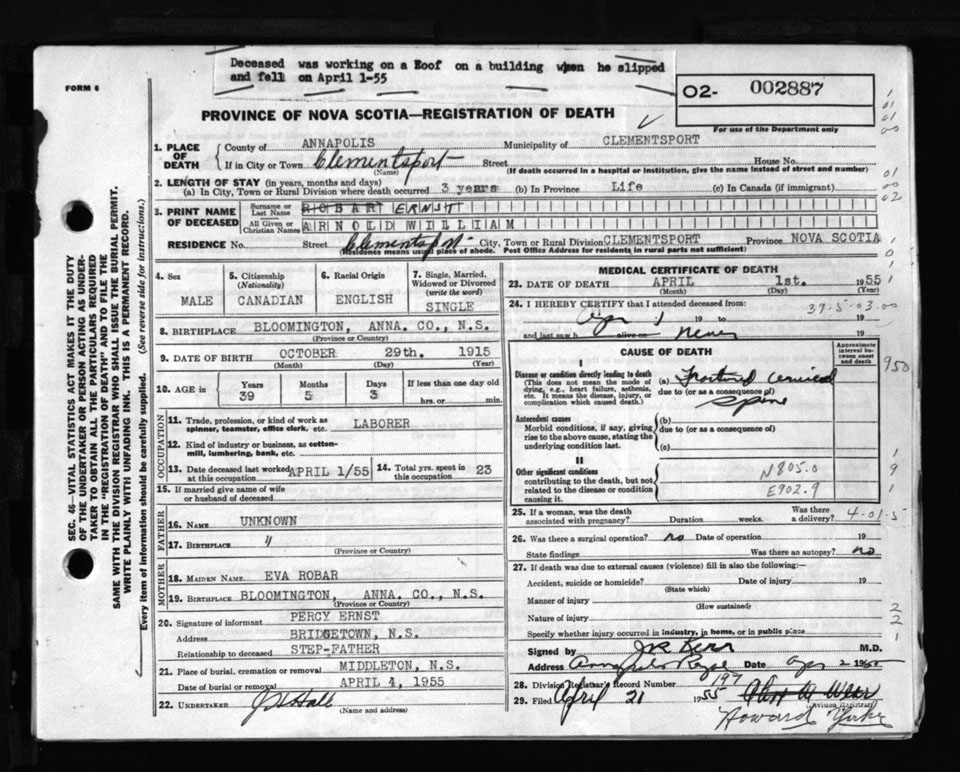 Deceased was working on a Roof on a building when he slipped
and fell on April 1-55
FORM 6
O2- 002887
For use of the Department only
PROVINCE OF NOVA SCOTIA—REGISTRATION OF DEATH
1. PLACE OF DEATH
County of ANNAPOLIS Municipality of CLEMENTSPORT
If in City or Town Clementsport Street House No.
(Name) (If death occurred in a hospital or institution, give the name instead of street and number)
2. LENGTH OF STAY (in years, months and days)
(a) In City, Town or Rural Division where death occurred 3 years (b) In Province Life (c) In Canada (if immigrant)
3. PRINT NAME OF DECEASED
Surname or Last Name ROBAR ERNST
All Given or Christian Names ARNOLD WILLIAM
RESIDENCE No. Street Clementsport City, Town or Rural Division CLEMENTSPORT Province NOVA SCOTIA
(Residence means usual place of abode. Post Office Address for residents in rural parts not sufficient)
4. Sex
MALE
5. Citizenship
(Nationality)
CANADIAN
6. Racial Origin
ENGLISH
7. Single, Married, Widowed or Divorced
(write the word)
SINGLE
8. BIRTHPLACE BLOOMINGTON, ANNA. CO., N.S.
(Province or Country)
9. DATE OF BIRTH OCTOBER 29th. 1915
(Month) (Day) (Year)
10. AGE in Years Months Days If less than one day old
39 5 3 hrs. or min.
OCCUPATION
11. Trade, profession, or kind of work as spinner, teamster, office clerk, etc. LABORER
12. Kind of industry or business, as cotten-mill, lumbering, bank, etc.
13. Date deceased last worked at this occupation APRIL 1/55 14. Total yrs. spent in this occupation 23
15. If married give name of wife or husband of deceased
FATHER
16. NAME UNKNOWN
17. BIRTHPLACE "
(Province or Country)
MOTHER
18. MAIDEN NAME EVA ROBAR
19. BIRTHPLACE BLOOMINGTON, ANNA. CO., N.S.
(Province or Country)
20. Signature of informant PERCY ERNST
Address BRIDGETOWN, N.S.
Relationship to deceased STEP-FATHER
21. Place of burial, cremation or removal MIDDLETON, N.S.
Date of burial or removal APRIL 4, 1955
22. UNDERTAKER Hall
(Name and address)
MEDICAL CERTIFICATE OF DEATH
23. DATE OF DEATH APRIL 1st. 1955
(Month) (Day) (Year)
24. I HEREBY CERTIFY that I attended deceased from:
39-5-03.00
Apr 1 19 to 19
and last saw h alive on Never 19
CAUSE OF DEATH
Approximate interval between onset and death
I
Disease or condition directly leading to death
(This does not mean the mode of dying, e.g., heart failure, asthenia, etc. It means the disease, injury, or complication which caused death.)
(a) Fractured cervical
due to (or as a consequence of)
Spine
950
Antecedent causes
Morbid conditions, if any, giving rise to the above cause, stating the underlying condition last.
(b)
due to (or as a consequence of)
(c)
II
Other significant conditions
contributing to the death, but not related to the disease or condition causing it.
N805.0
E902.9
25. If a woman, was the death associated with pregnancy? Duration weeks. Was there a delivery? 4-01-5
26. Was there a surgical operation? no Date of operation 19
State findings Was there an autopsy? no
27. If death was due to external causes (violence) fill in also the following:—
Accident, suicide or homicide? Date of injury 19
(State which)
Manner of injury
(How sustained)
Nature of injury
Specify whether injury occurred in industry, in home, or in public place
Signed by Kerr M.D.
Address Annapolis Royal Date Apr 2 1955
28. Division Registrar's Record Number 197
29. Filed April 21 1955
(Division Registrar)
Howard Yorke
SEC. 46—VITAL STATISTICS ACT MAKES IT THE DUTY
OF THE UNDERTAKER OR PERSON ACTING AS UNDER-
TAKER TO OBTAIN ALL THE PARTICULARS REQUIRED
IN THE "REGISTRATION OF DEATH" AND TO FILE THE
SAME WITH THE DIVISION REGISTRAR WHO SHALL ISSUE THE BURIAL PERMIT.
WRITE PLAINLY WITH UNFADING INK. THIS IS A PERMANENT RECORD.
Every item of information should be carefully supplied. (See reverse side for instructions.)